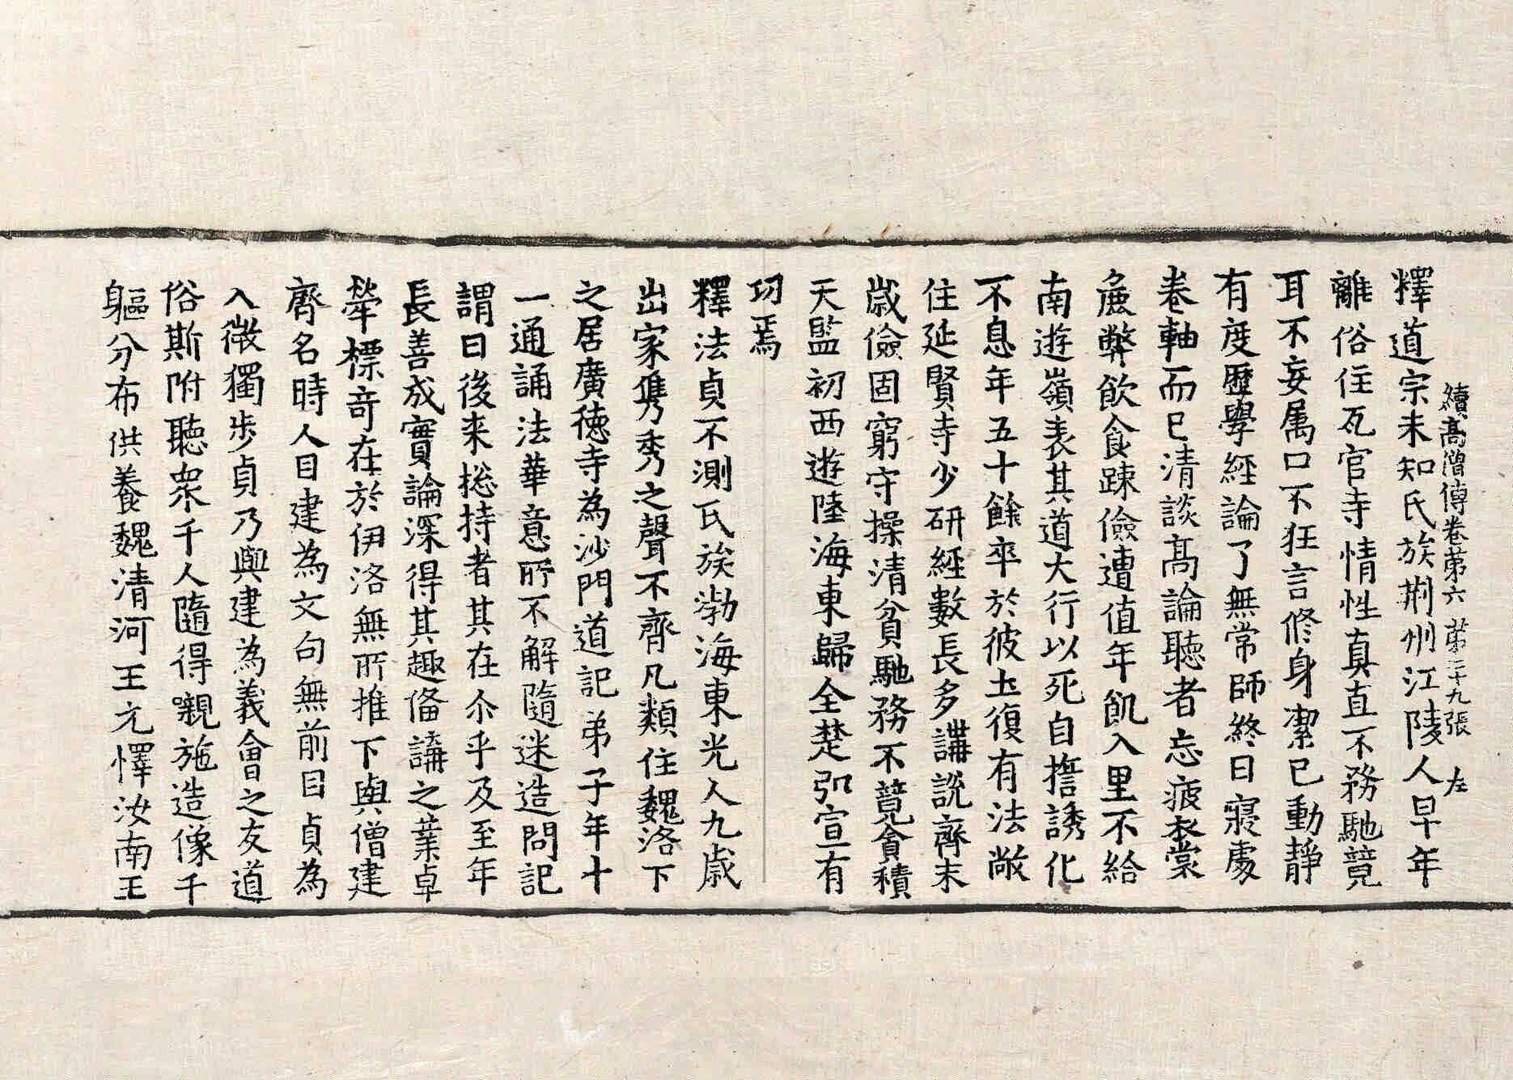 續高僧傳卷第六 第二十九張 左
釋道宗未知氏族荆州江陵人早年
離俗住瓦官寺情性真直不務馳競
耳不妄属口不狂言修身潔已動靜
有度歷學經論了無常師終日寢處
卷軸而已清談髙論聽者忘疲袈裳
麁弊飲食踈儉遭值年飢入里不給
南遊嶺表其道大行以死自誓誘化
不息年五十餘卒於彼土復有法敞
住延賢寺少研經數長多講說齊末
歲儉固窮守操清貧馳務不競貪積
天監初西遊陸海東歸全楚弘宣有
功焉
釋法貞不測氏族渤海東光人九歲
出家儁秀之聲不齊凡類住魏洛下
之居廣德寺為沙門道記弟子年十
一通誦法華意所不解隨迷造問記
謂曰後来捴持者其在尒乎及至年
長善成實論深得其趣俻講之業卓
犖標竒在於伊洛無所推下與僧建
齊名時人目建為文句無前目貞為
入微獨步貞乃與建為義會之友道
俗斯附聽衆千人隨得嚫施造像千
軀分布供養魏清河王元懌汝南王